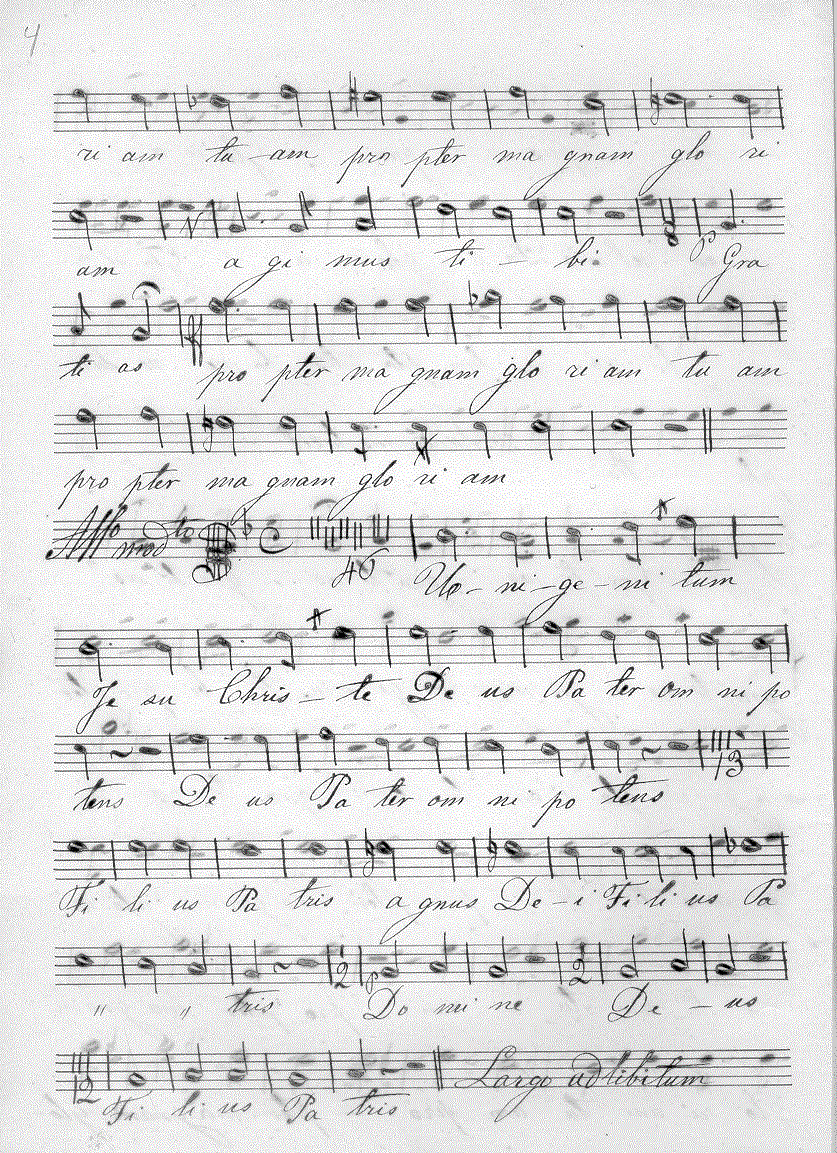 4
ri am tu am pro pter ma gnam glo ri
am a gi mus ti - bi. P Gra
ti as pro pter ma gnam glo ri am tu am
pro pter ma gnam glo ri am
Allo modto 46
U - ni - ge - ni tum
Je su Chris - te De us Pa ter om ni po
tens De us Pa ter om ni po tens 13
Fi li us Pa tris a gnus De - i Fi li us Pa
" " tris 2 P Do mi ne 2 De - us
2 Fi li us Pa tris Largo ad libitum